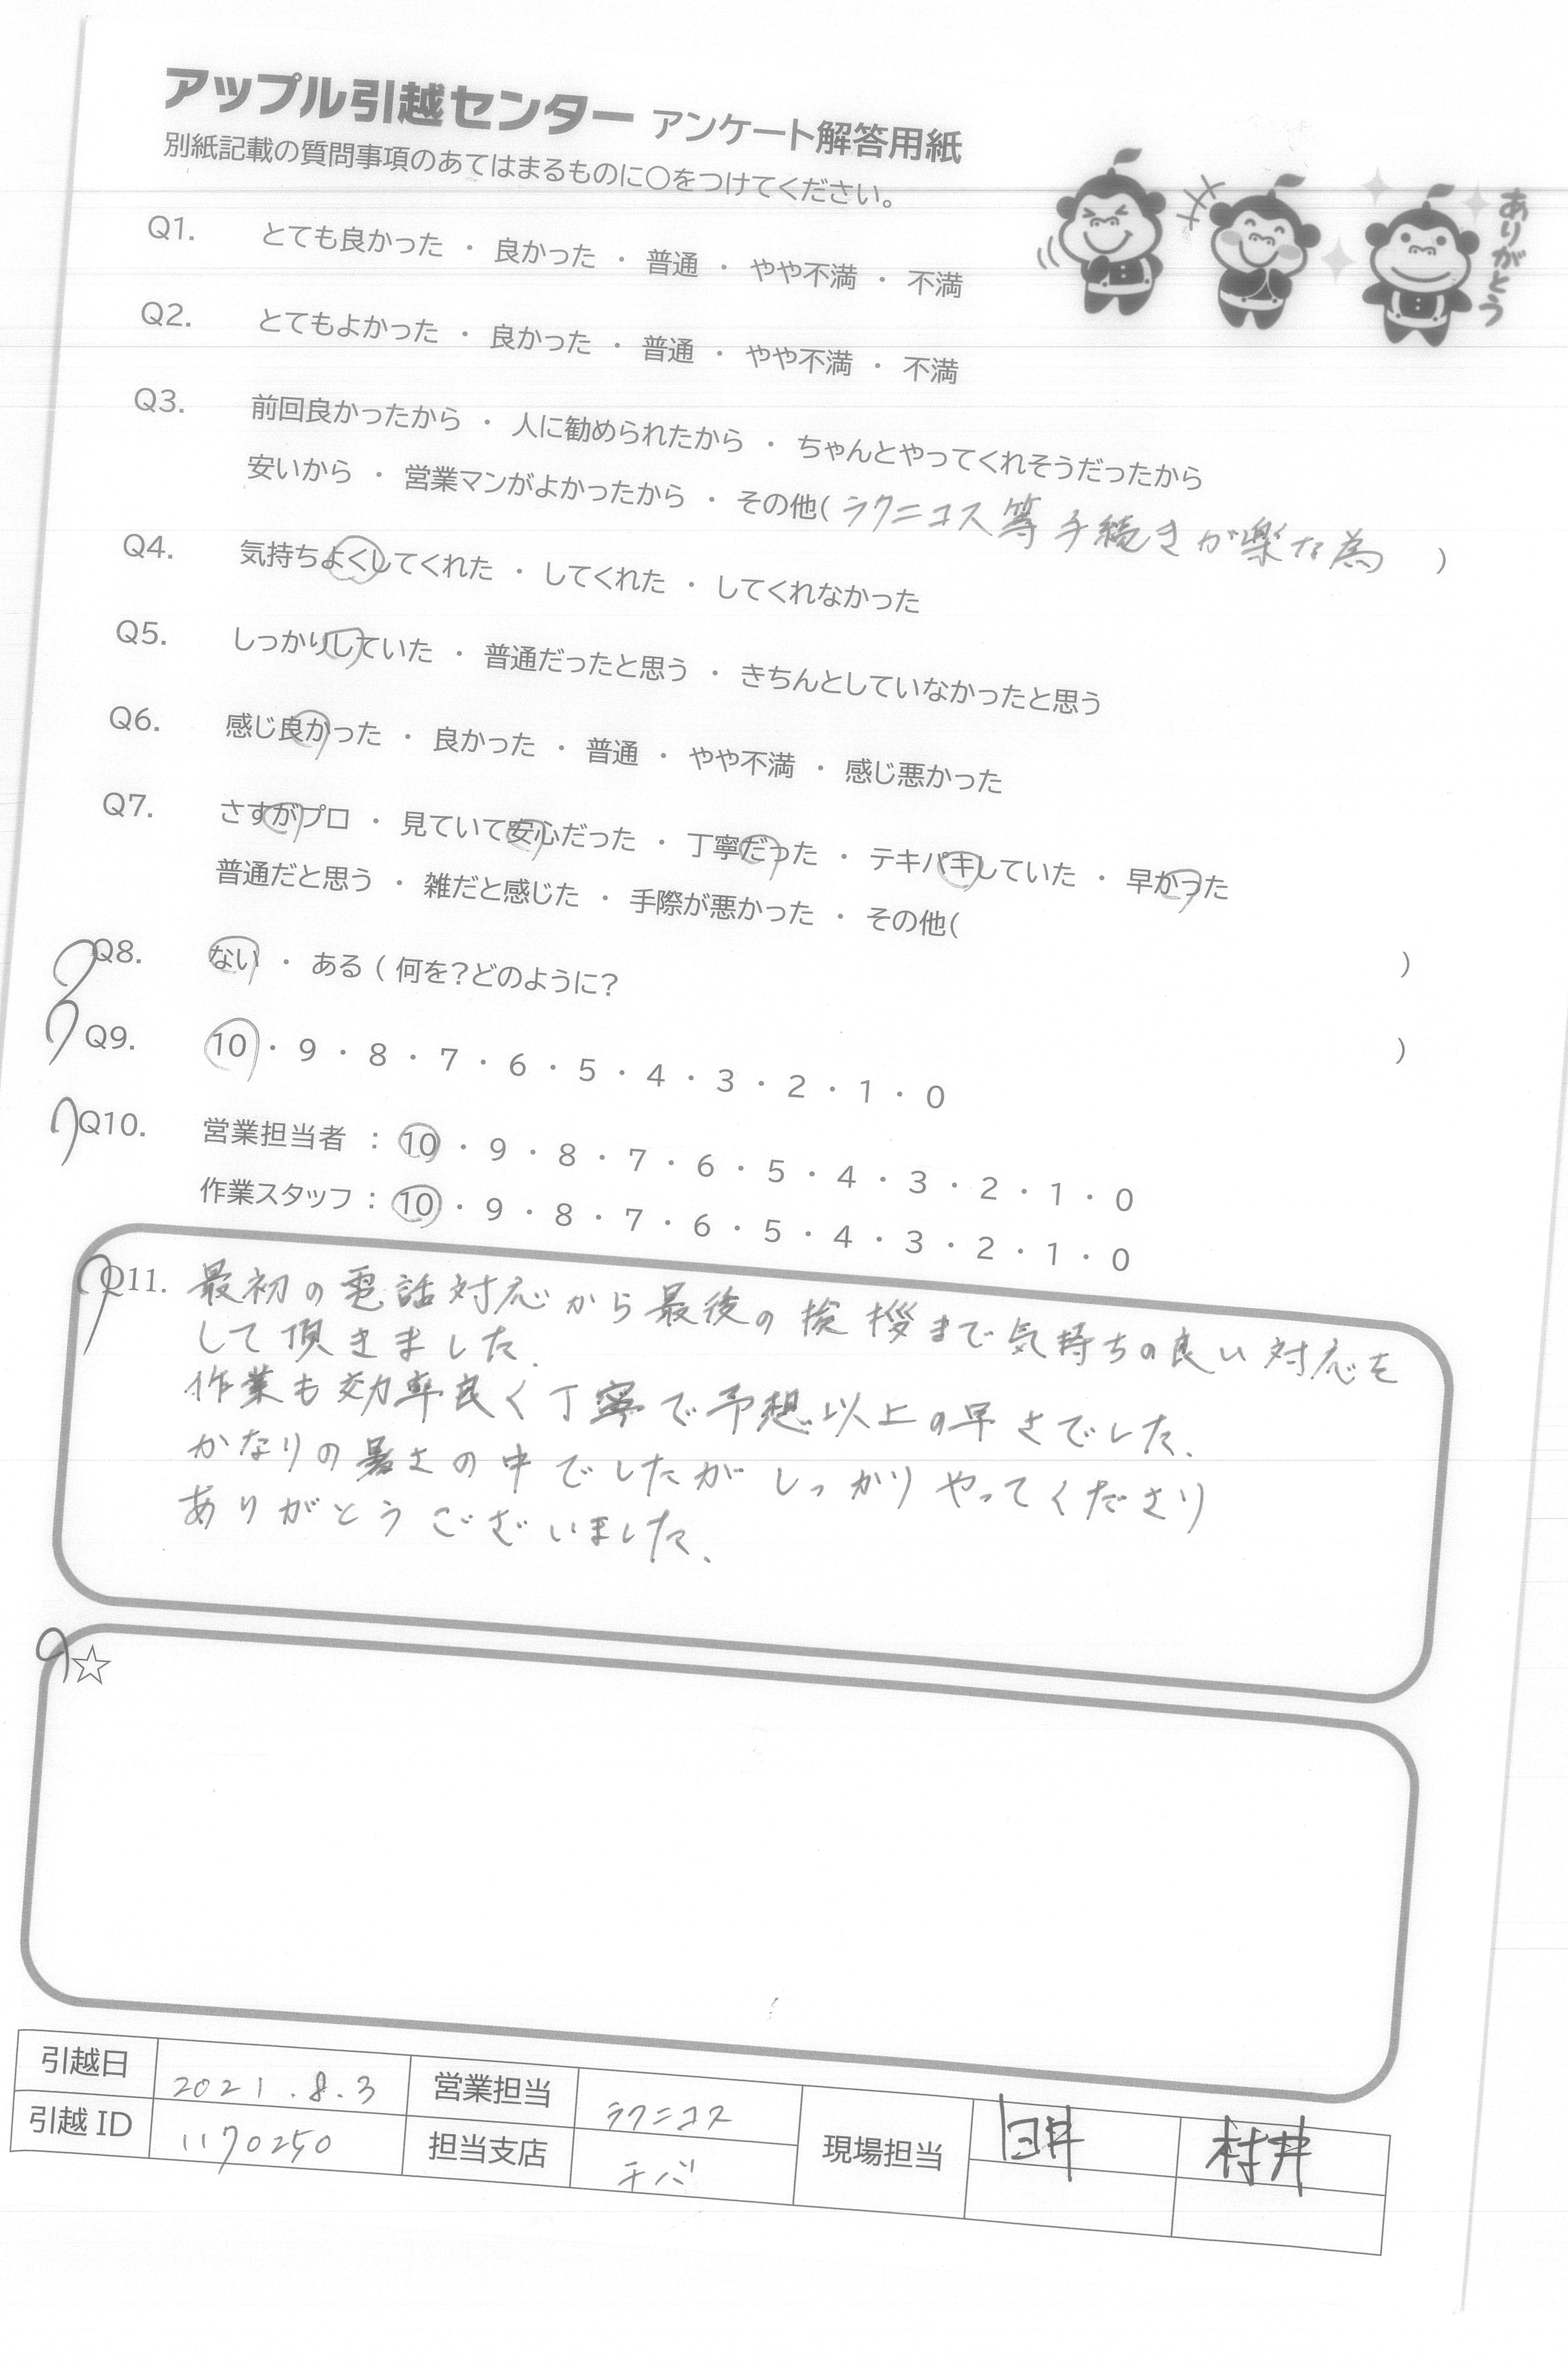 アップル引越センター アンケート解答用紙
別紙記載の質問事項のあてはまるものに○をつけてください。
ありがとう
Q1. とても良かった ・ 良かった ・ 普通 ・ やや不満 ・ 不満
Q2. とてもよかった ・ 良かった ・ 普通 ・ やや不満 ・ 不満
Q3. 前回良かったから ・ 人に勧められたから ・ ちゃんとやってくれそうだったから
安いから ・ 営業マンがよかったから ・ その他( ラクニコス等手続きが楽な為 )
Q4. 気持ちよくしてくれた ・ してくれた ・ してくれなかった
Q5. しっかりしていた ・ 普通だったと思う ・ きちんとしていなかったと思う
Q6. 感じ良かった ・ 良かった ・ 普通 ・ やや不満 ・ 感じ悪かった
Q7. さすがプロ ・ 見ていて安心だった ・ 丁寧だった ・ テキパキしていた ・ 早かった
普通だと思う ・ 雑だと感じた ・ 手際が悪かった ・ その他( )
Q8. ない ・ ある ( 何を?どのように? )
Q9. 10 ・ 9 ・ 8 ・ 7 ・ 6 ・ 5 ・ 4 ・ 3 ・ 2 ・ 1 ・ 0
Q10. 営業担当者 : 10 ・ 9 ・ 8 ・ 7 ・ 6 ・ 5 ・ 4 ・ 3 ・ 2 ・ 1 ・ 0
作業スタッフ : 10 ・ 9 ・ 8 ・ 7 ・ 6 ・ 5 ・ 4 ・ 3 ・ 2 ・ 1 ・ 0
Q11. 最初の電話対応から最後の挨拶まで気持ちの良い対応を
して頂きました。
作業も効率良く丁寧で予想以上の早さでした。
かなりの暑さの中でしたがしっかりやってくださり
ありがとうございました。
☆
引越日 2021.8.3 営業担当 ラクニコス 現場担当 臼井 村井
引越ID 1170250 担当支店 チバ